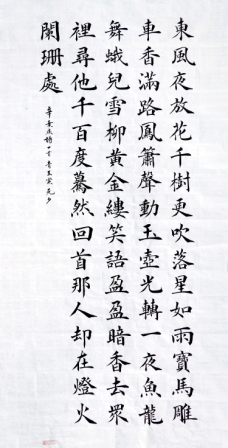 東風夜放花千樹更吹落星如雨寶馬雕
車香滿路鳳簫聲動玉壺光轉一夜魚龍
舞蛾兒雪柳黃金縷笑語盈盈暗香去眾
裡尋他千百度驀然回首那人却在燈火
闌珊處
青玉案元夕